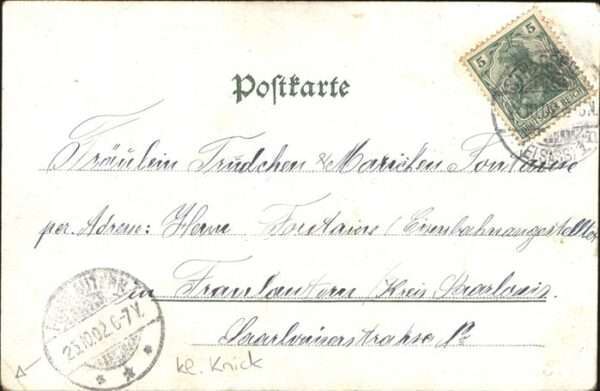 Postkarte
5
DEUTSCHES REICH
Fräulein Trudchen & Mariechen Fontaine
per. Adresse: Herrn Fontaine (Eisenbahnangestellter
in Fraulautern (Kreis Saarlouis.
Saarlouiserstrahse No
FRAULAUTERN
25.10.02.6-7V.
kl. Knick